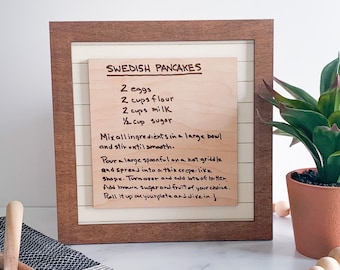 SWEDISH PANCAKES
2 eggs
2 cups flour
2 cups milk
½ cup sugar
Mix all ingredients in a large bowl
and stir until smooth.
Pour a large spoonful on a hot griddle
and spread into a thin crepe-like
shape. Turn over and add lots of butter
fold brown sugar and fruit of your choice.
Roll it up on your plate and dive in